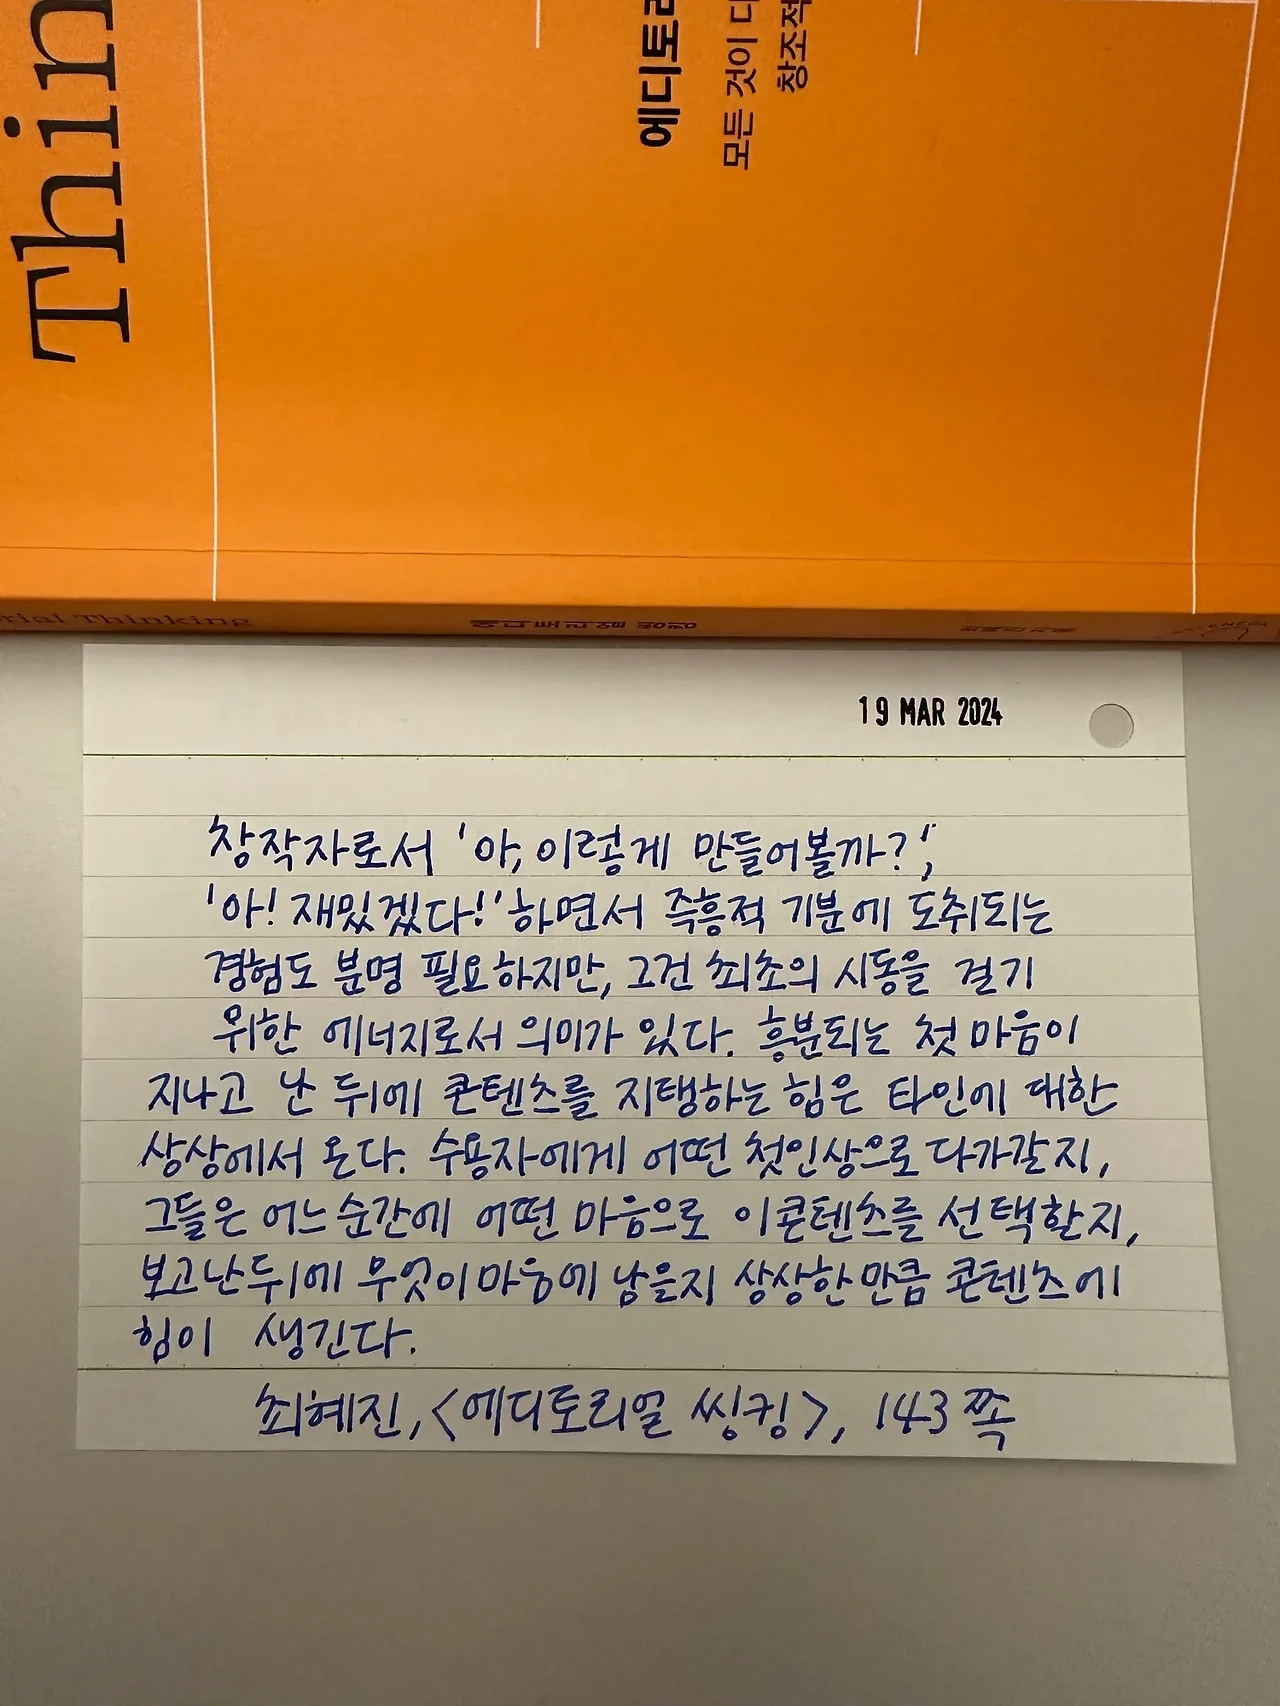 Thin
에디토리
모든 것이 다
창조적
rial Thinking
19 MAR 2024
창작자로서 '아, 이렇게 만들어볼까?',
'아! 재밌겠다!' 하면서 즉흥적 기분에 도취되는
경험도 분명 필요하지만, 그건 최초의 시동을 걸기
위한 에너지로서 의미가 있다. 흥분되는 첫 마음이
지나고 난 뒤에 콘텐츠를 지탱하는 힘은 타인에 대한
상상에서 온다. 수용자에게 어떤 첫인상으로 다가갈지,
그들은 어느 순간에 어떤 마음으로 이 콘텐츠를 선택할지,
보고 난 뒤에 무엇이 마음에 남을지 상상한 만큼 콘텐츠에
힘이 생긴다.
최혜진, <에디토리얼 씽킹>, 143쪽